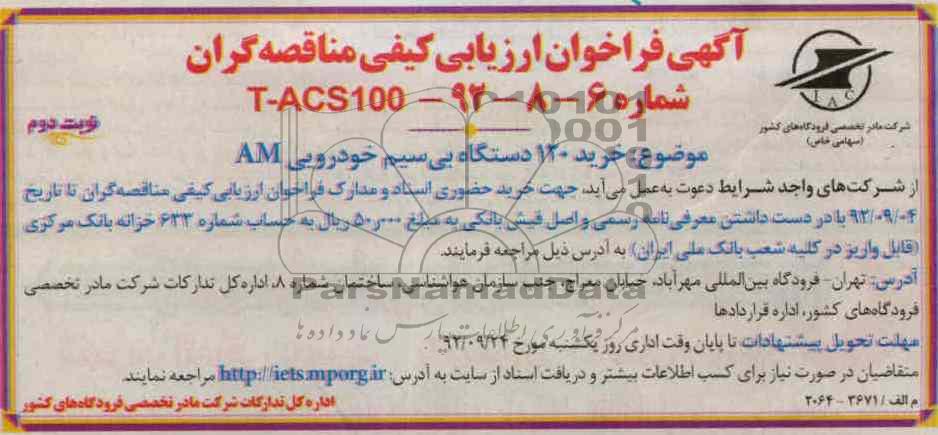 آگهی فراخوان ارزیابی کیفی مناقصه‌گران
شماره ۶ – ۸ – ۹۲ – T-ACS100
IAC
شرکت مادر تخصصی فرودگاه‌های کشور
(سهامی خاص)
نوبت دوم
موضوع: خرید ۱۲۰ دستگاه بی‌سیم خودرویی AM
از شرکت‌های واجد شرایط دعوت به‌عمل می‌آید، جهت خرید حضوری اسناد و مدارک فراخوان ارزیابی کیفی مناقصه‌گران تا تاریخ
۹۲/۰۹/۰۴ با در دست داشتن معرفی‌نامه رسمی و اصل فیش بانکی به مبلغ ۵۰٫۰۰۰ ریال به حساب شماره ۶۳۳ خزانه بانک مرکزی
(قابل واریز در کلیه شعب بانک ملی ایران) به آدرس ذیل مراجعه فرمایند.
آدرس: تهران- فرودگاه بین‌المللی مهرآباد، خیابان معراج، جنب سازمان هواشناسی، ساختمان شماره ۸، اداره کل تدارکات شرکت مادر تخصصی
فرودگاه‌های کشور، اداره قراردادها
ParsNamadData
مرکز فرآوری اطلاعات پارس نماد داده ها
مهلت تحویل پیشنهادات تا پایان وقت اداری روز یکشنبه مورخ ۹۲/۰۹/۲۴ .
متقاضیان در صورت نیاز برای کسب اطلاعات بیشتر و دریافت اسناد از سایت به آدرس: http://iets.mporg.ir مراجعه نمایند.
م الف / ۳۶۷۱ – ۲۰۶۴
اداره کل تدارکات شرکت مادر تخصصی فرودگاه‌های کشور